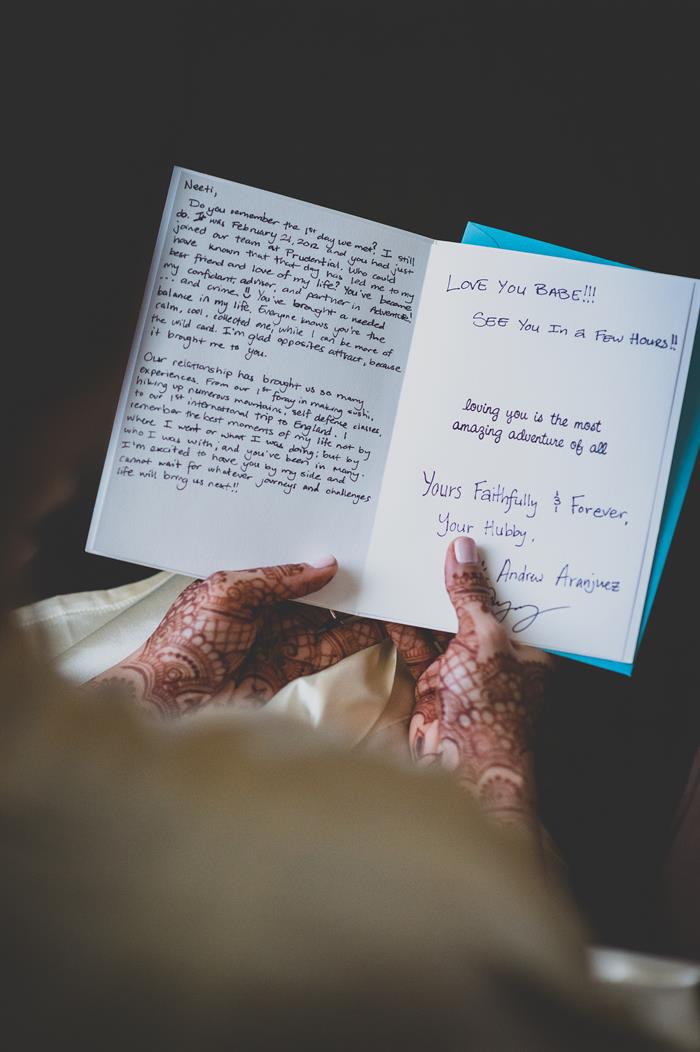 Neeti,
Do you remember the 1st day we met? I still
do. It was February 21, 2012 and you had just
joined our team at Prudential. Who could
have known that that day has led me to my
best friend and love of my life? You've become
my confidant, advisor, and partner in Adventure!
... and crime.!! You've brought a needed
balance in my life. Everyone knows you're the
calm, cool, collected one, while I can be more of
the wild card. I'm glad opposites attract, because
it brought me to you.
Our relationship has brought us so many
experiences. From our 1st foray in making sushi,
hiking up numerous mountains, self defense classes,
to our 1st international trip to England. I
remember the best moments of my life not by
where I went or what I was doing; but by
who I was with, and you've been in many.
I'm excited to have you by my side and
cannot wait for whatever journeys and challenges
life will bring us next!!
LOVE YOU BABE!!!
SEE YOU IN a FEW HOURS!!
loving you is the most
amazing adventure of all
Yours Faithfully & Forever,
Your Hubby,
Andrew Aranjuez